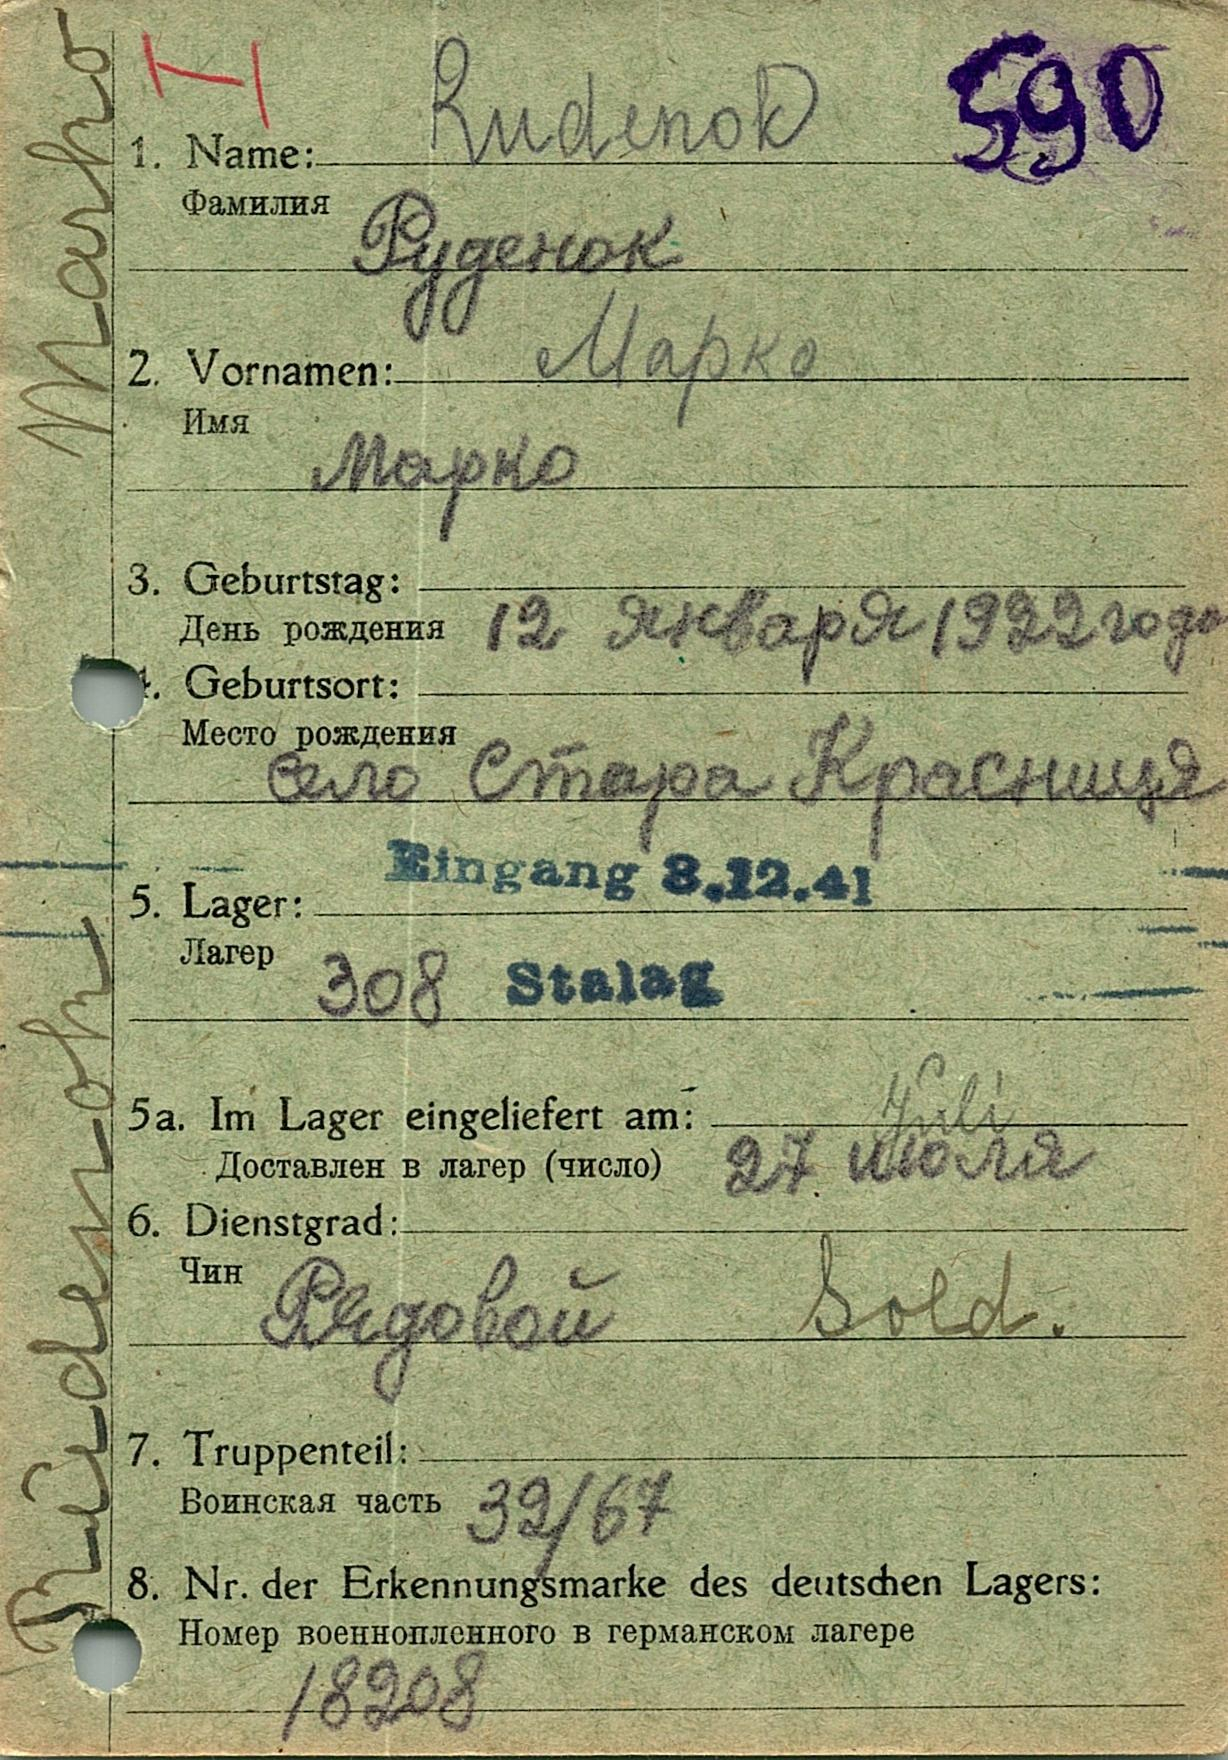 590
Rudenok
1. Name:
Фамилия
Руденок
Марко
2. Vornamen:
Имя
Марко
3. Geburtstag:
День рождения 12 января 1922 года
4. Geburtsort:
Место рождения
село Стара Красниця
Eingang 3.12.41
5. Lager:
Лагер
308 Stalag
Juli
5a. Im Lager eingeliefert am:
Доставлен в лагер (число) 27 июля
6. Dienstgrad:
Чин
Рядовой Sold.
7. Truppenteil:
Воинская часть 32/67
8. Nr. der Erkennungsmarke des deutschen Lagers:
Номер военнопленного в германском лагере
18208
Rudenok Marko